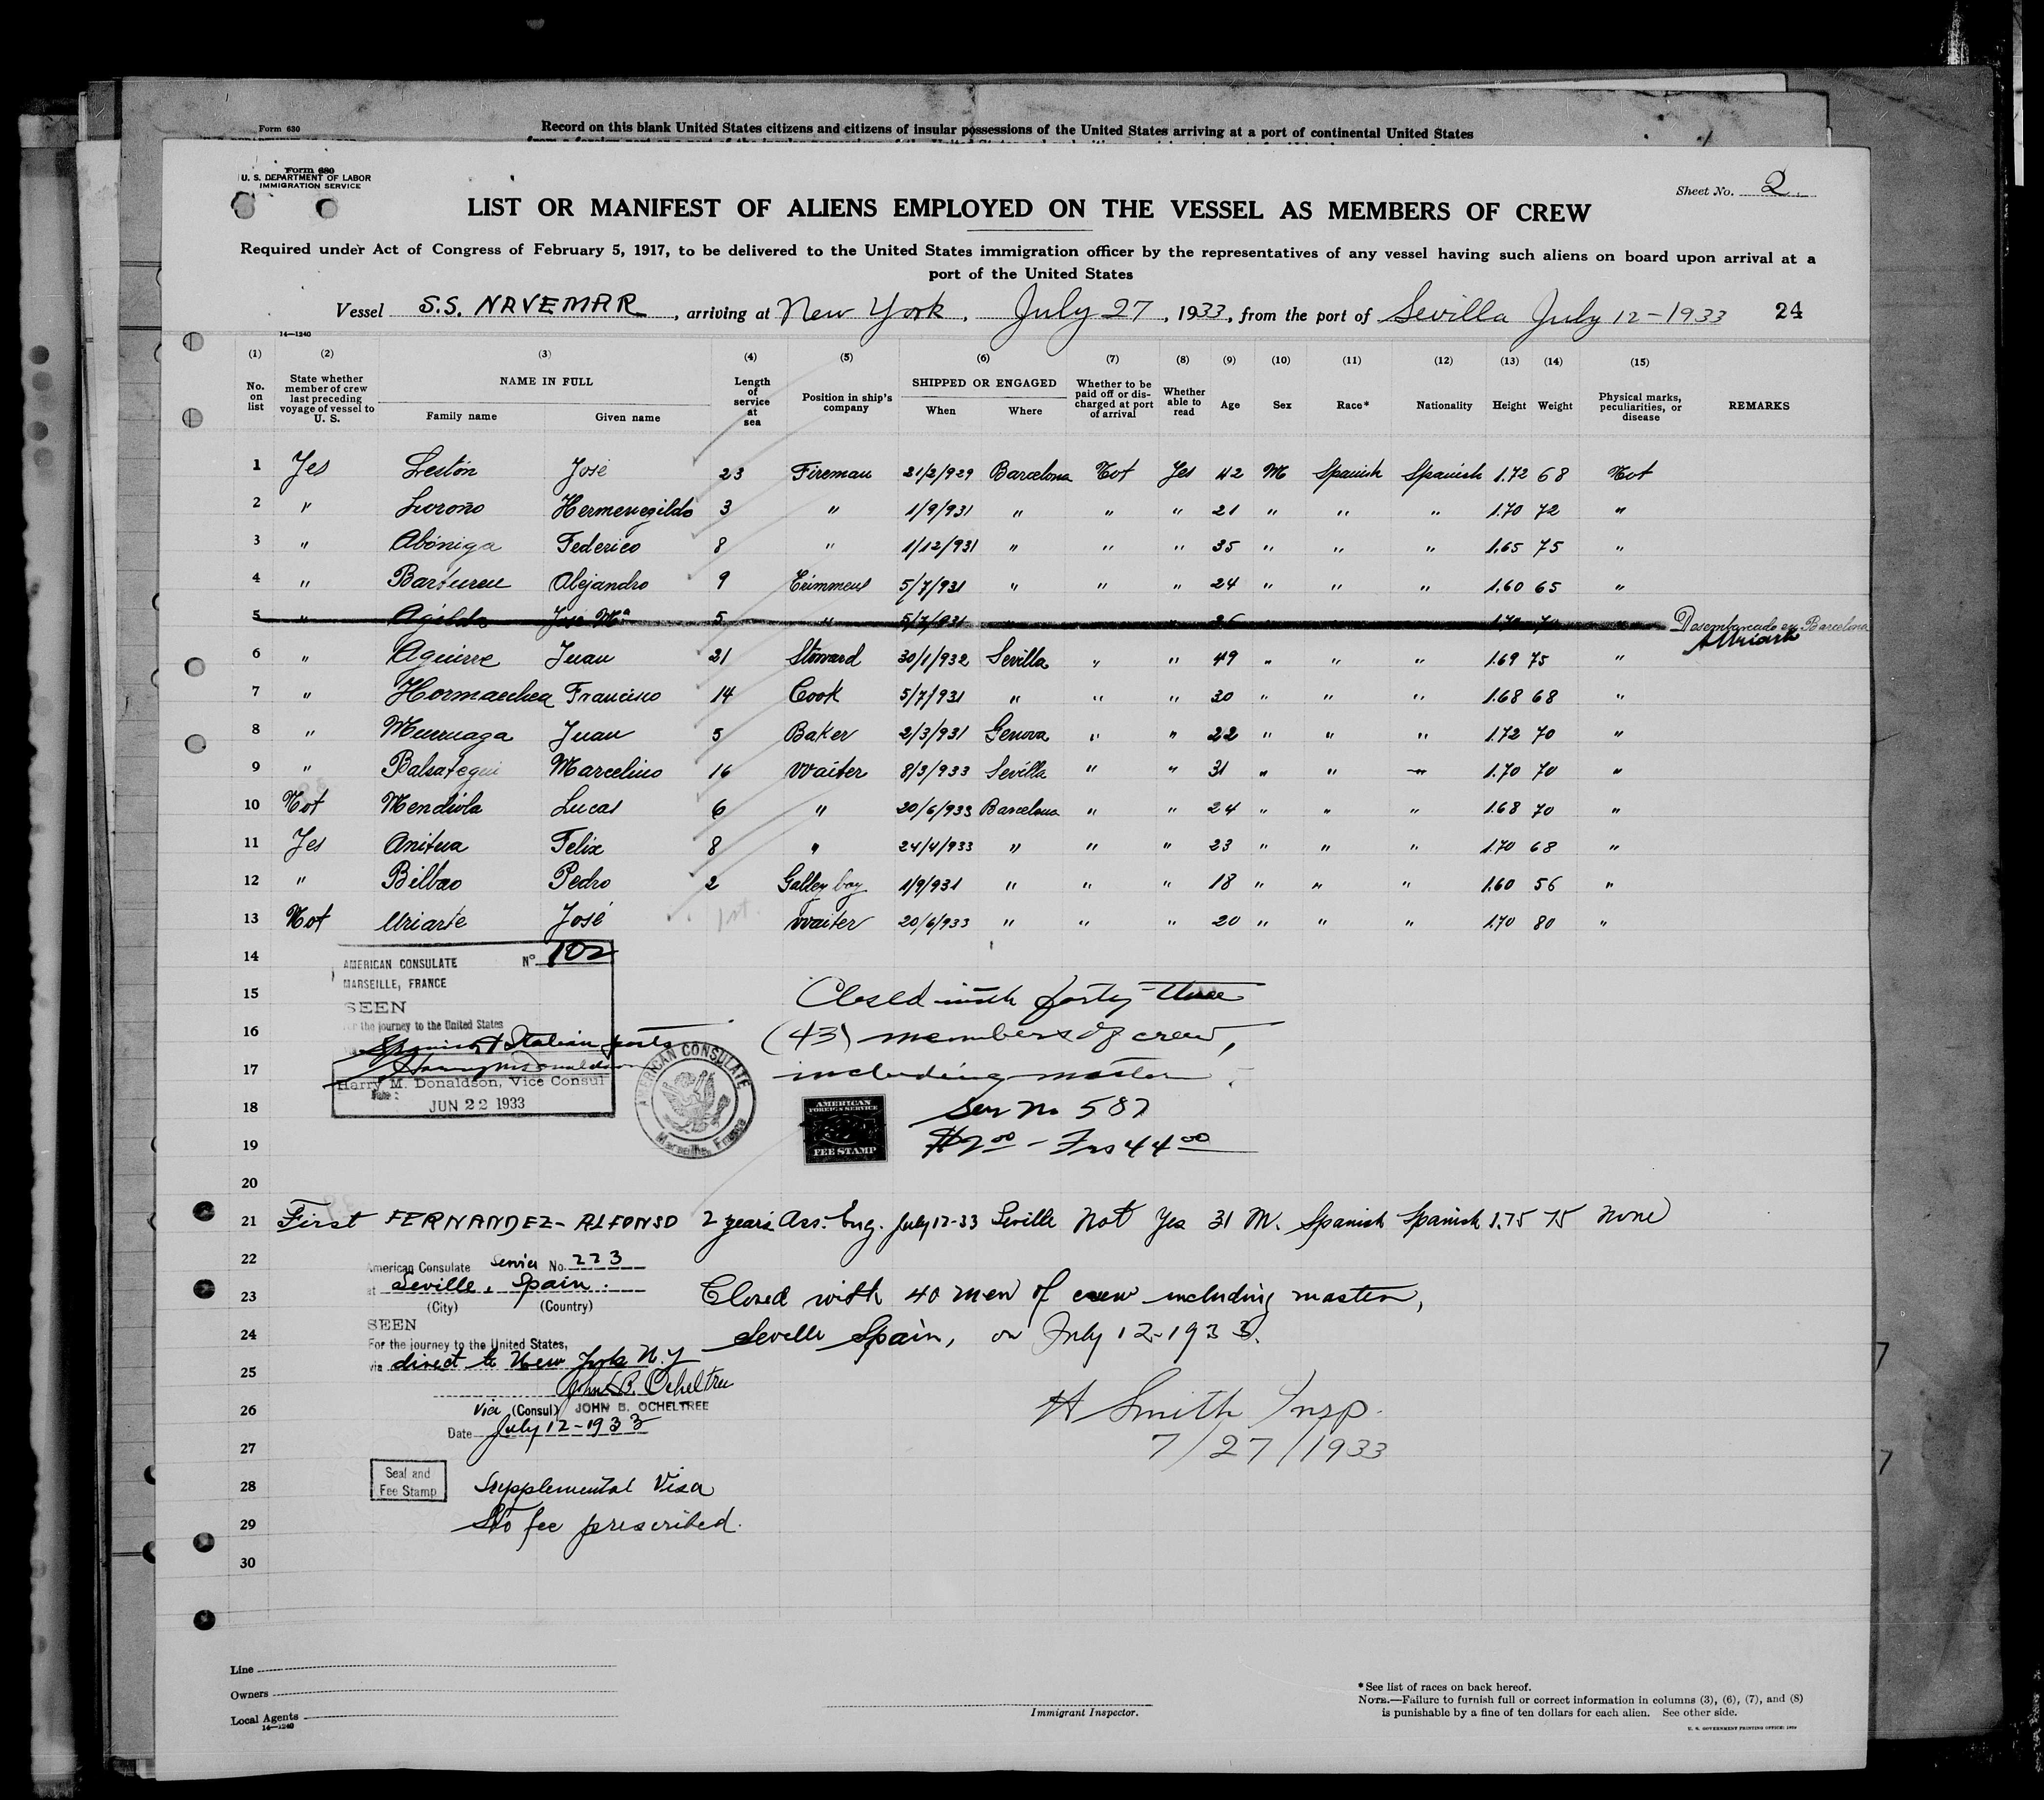 Form 630
Record on this blank United States citizens and citizens of insular possessions of the United States arriving at a port of continental United States
Form 680
U. S. DEPARTMENT OF LABOR
IMMIGRATION SERVICE
Sheet No. 2.
LIST OR MANIFEST OF ALIENS EMPLOYED ON THE VESSEL AS MEMBERS OF CREW
Required under Act of Congress of February 5, 1917, to be delivered to the United States immigration officer by the representatives of any vessel having such aliens on board upon arrival at a
port of the United States
Vessel S.S. NAVEMAR, arriving at New York, July 27, 1933, from the port of Sevilla July 12-1933 24
14—1240
(1) (2) (3) (4) (5) (6) (7) (8) (9) (10) (11) (12) (13) (14) (15)
No. on list State whether member of crew last preceding voyage of vessel to U. S. NAME IN FULL Family name Given name Length of service at sea Position in ship's company SHIPPED OR ENGAGED When Where Whether to be paid off or discharged at port of arrival Whether able to read Age Sex Race* Nationality Height Weight Physical marks, peculiarities, or disease REMARKS
1 Yes Lestón José 23 Fireman 21/2/929 Barcelona Not Yes 42 M Spanish Spanish 1.72 68 Not
2 " Loroño Hermenegildo 3 " 1/9/931 " " " 21 " " " 1.70 72 "
3 " Abóniga Federico 8 " 1/12/931 " " " 35 " " " 1.65 75 "
4 " Barturen Alejandro 9 Trimmers 5/7/931 " " " 24 " " " 1.60 65 "
5 " José Mª 5 " 5/7/931 " 26 1.70 70 " Desembarcado en Barcelona
AUriarte
6 " Aguirre Juan 21 Steward 30/1/932 Sevilla " " 49 " " " 1.69 75 "
7 " Hormaechea Francisco 14 Cook 5/7/931 " " " 30 " " " 1.68 68 "
8 " Murruaga Juan 5 Baker 2/3/931 Genova " " 22 " " " 1.72 70 "
9 " Balsategui Marcelino 16 Waiter 8/3/933 Sevilla " " 31 " " " 1.70 70 "
10 Not Mendiola Lucas 6 " 20/6/933 Barcelona " " 24 " " " 1.68 70 "
11 Yes Anitua Felix 8 " 24/4/933 " " " 23 " " " 1.70 68 "
12 " Bilbao Pedro 2 Galley boy 1/9/931 " " " 18 " " " 1.60 56 "
13 Not Uriarte José 1st. Waiter 20/6/933 " " " 20 " " " 1.70 80 "
14
AMERICAN CONSULATE Nº 102
MARSEILLE, FRANCE
15 Closed with forty three
SEEN
For the journey to the United States
16 (43) members of crew,
Spanish & Italian ports
17 including master.
Harry M. Donaldson, Vice Consul
Date: JUN 22 1933
AMERICAN CONSULATE
Marseille, France
18 Ser No 587
AMERICAN
FOREIGN SERVICE
FEE STAMP
19 $2.00 - Frs 44.00
20
21 First FERNANDEZ- ALFONSO 2 years Ass. Eng. July 12-33 Seville Not Yes 31 M. Spanish Spanish 1.75 75 None
22
American Consulate Service No. 223
at Seville, Spain.
(City) (Country)
23 Closed with 40 men of crew including master,
SEEN
24 Seville Spain, on July 12-1933.
For the journey to the United States,
via direct to New York N.Y
25
John B. Ocheltree
26 Vice (Consul) JOHN B. OCHELTREE
H Smith Insp.
Date July 12-1933
27 7/27/1933
Seal and
Fee Stamp
28 Supplemental Visa
29 No fee prescribed.
30
Line
Owners
Local Agents
14—1240
Immigrant Inspector.
*See list of races on back hereof.
NOTE.—Failure to furnish full or correct information in columns (3), (6), (7), and (8)
is punishable by a fine of ten dollars for each alien. See other side.
U. S. GOVERNMENT PRINTING OFFICE: 1929